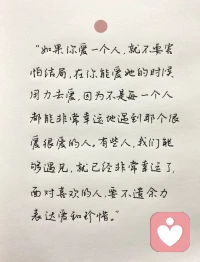 “如果你爱一个人，就不要害
怕结局，在你能爱她的时候
用力去爱，因为不是每一个人
都能非常幸运地遇到那个很
爱很爱的人。有些人，我们能
够遇见，就已经非常幸运了，
面对喜欢的人，要不遗余力
表达爱和珍惜。”